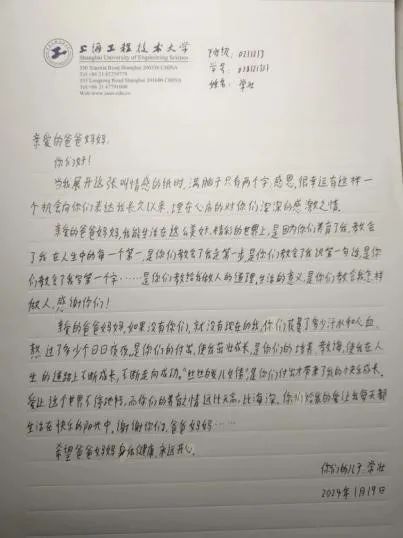 上海工程技术大学
Shanghai University of Engineering Science
班级: 0233213
学号:
姓名: 学壮
亲爱的爸爸妈妈:
你们好!
当我展开这张叫情感的纸时,满脑子只有两个字,感恩,很幸运有这样一
个机会向你们表达我长久以来,埋在心底的对你们深深的感激之情。
亲爱的爸爸妈妈,我能生活在这么美好、精彩的世界上,是因为你们养育了我,教会
了我在人生中的每一个第一,是你们教会了我走第一步,是你们教会了我说第一句话,是你
们教会了我写第一个字……是你们教给我做人的道理,生活的意义,是你们教会我怎样
做人,感谢你们!
亲爱的爸爸妈妈,如果没有你们,就没有现在的我,你们花费了多少汗水和心血,
熬过了多少个日日夜夜,是你们的付出,使我茁壮成长,是你们的培养、教诲,使我在人
生的道路上不断成长,不断走向成功。是你们付出才带来了我的快乐成长。
爱让这个世界不停地转,而你们的养育之情远比天高,比海深。你们给我的爱让我每天都
生活在快乐的阳光中,谢谢你们,爸爸妈妈……
希望爸爸妈妈身体健康,永远开心。
你们的儿子:学壮
2024年1月19日